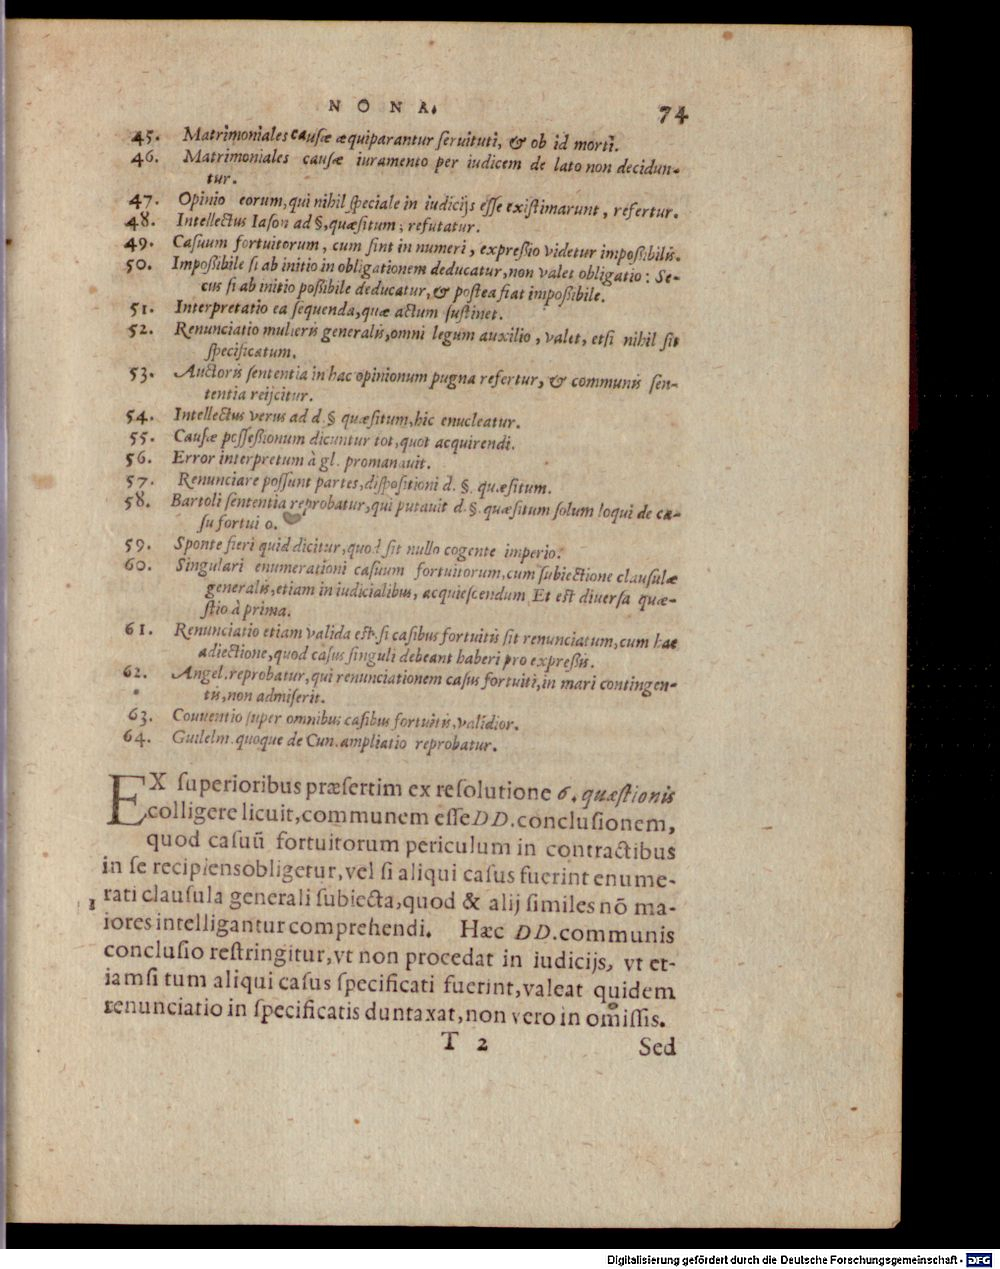 NONA. 74
45. Matrimoniales causæ æquiparantur seruituti, & ob id morti.
46. Matrimoniales causæ iuramento per iudicem de lato non decidun-
tur.
47. Opinio eorum, qui nihil speciale in iudicijs esse existimarunt, refertur.
48. Intellectus Iason ad §, quæsitum; refutatur.
49. Casuum fortuitorum, cum sint in numeri, expressio videtur impossibilis.
50. Impossibile si ab initio in obligationem deducatur, non valet obligatio: Se-
cus si ab initio possibile deducatur, & postea fiat impossibile.
51. Interpretatio ea sequenda, quæ actum sustinet.
52. Renunciatio mulieris generalis, omni legum auxilio, valet, etsi nihil sit
specificatum.
53. Auctoris sententia in hac opinionum pugna refertur, & communis sen-
tentia reijcitur.
54. Intellectus verus ad d. § quæsitum, hic enucleatur.
55. Causæ possessionum dicuntur tot, quot acquirendi.
56. Error interpretum à gl. promanauit.
57. Renunciare possunt partes, dispositioni d. §. quæsitum.
58. Bartoli sententia reprobatur, qui putauit d. §. quæsitum solum loqui de ca-
su fortui o.
59. Sponte fieri quid dicitur, quod sit nullo cogente imperio.
60. Singulari enumerationi casuum fortuitorum, cum subiectione clausulæ
generalis, etiam in iudicialibus, acquiescendum Et est diuersa quæ-
stio à prima.
61. Renunciatio etiam valida est, si casibus fortuitis sit renunciatum, cum hac
adiectione, quod casus singuli debeant haberi pro expressis.
62. Angel. reprobatur, qui renunciationem casus fortuiti, in mari contingen-
tis, non admiserit.
63. Conuentio super omnibus casibus fortuitis, validior.
64. Guilelm. quoque de Cun. ampliatio reprobatur.
EX superioribus præsertim ex resolutione 6. quæstionis
colligere licuit, communem esse DD. conclusionem,
quod casuũ fortuitorum periculum in contractibus
in se recipiens obligetur, vel si aliqui casus fuerint enume-
1 rati clausula generali subiecta, quod & alij similes nõ ma-
iores intelligantur comprehendi. Hæc DD. communis
conclusio restringitur, vt non procedat in iudicijs, vt et-
iamsi tum aliqui casus specificati fuerint, valeat quidem
renunciatio in specificatis duntaxat, non vero in omissis.
T 2 Sed
Digitalisierung gefördert durch die Deutsche Forschungsgemeinschaft - DFG